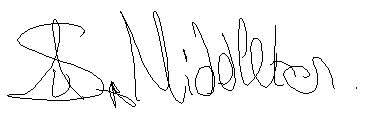 S. Middleton.